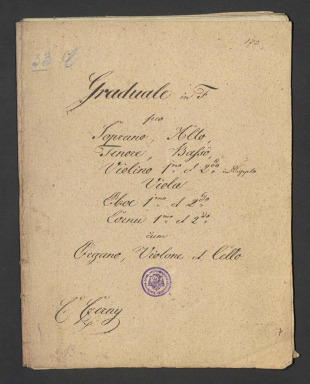 33
Graduale in F
pro
Soprano, Alto,
Tenore, Basso
Violino 1mo et 2do
Viola
Oboe 1mo et 2do
Cornu 1mo et 2do
cum
Organo, Violone et Cello
C. Czerny